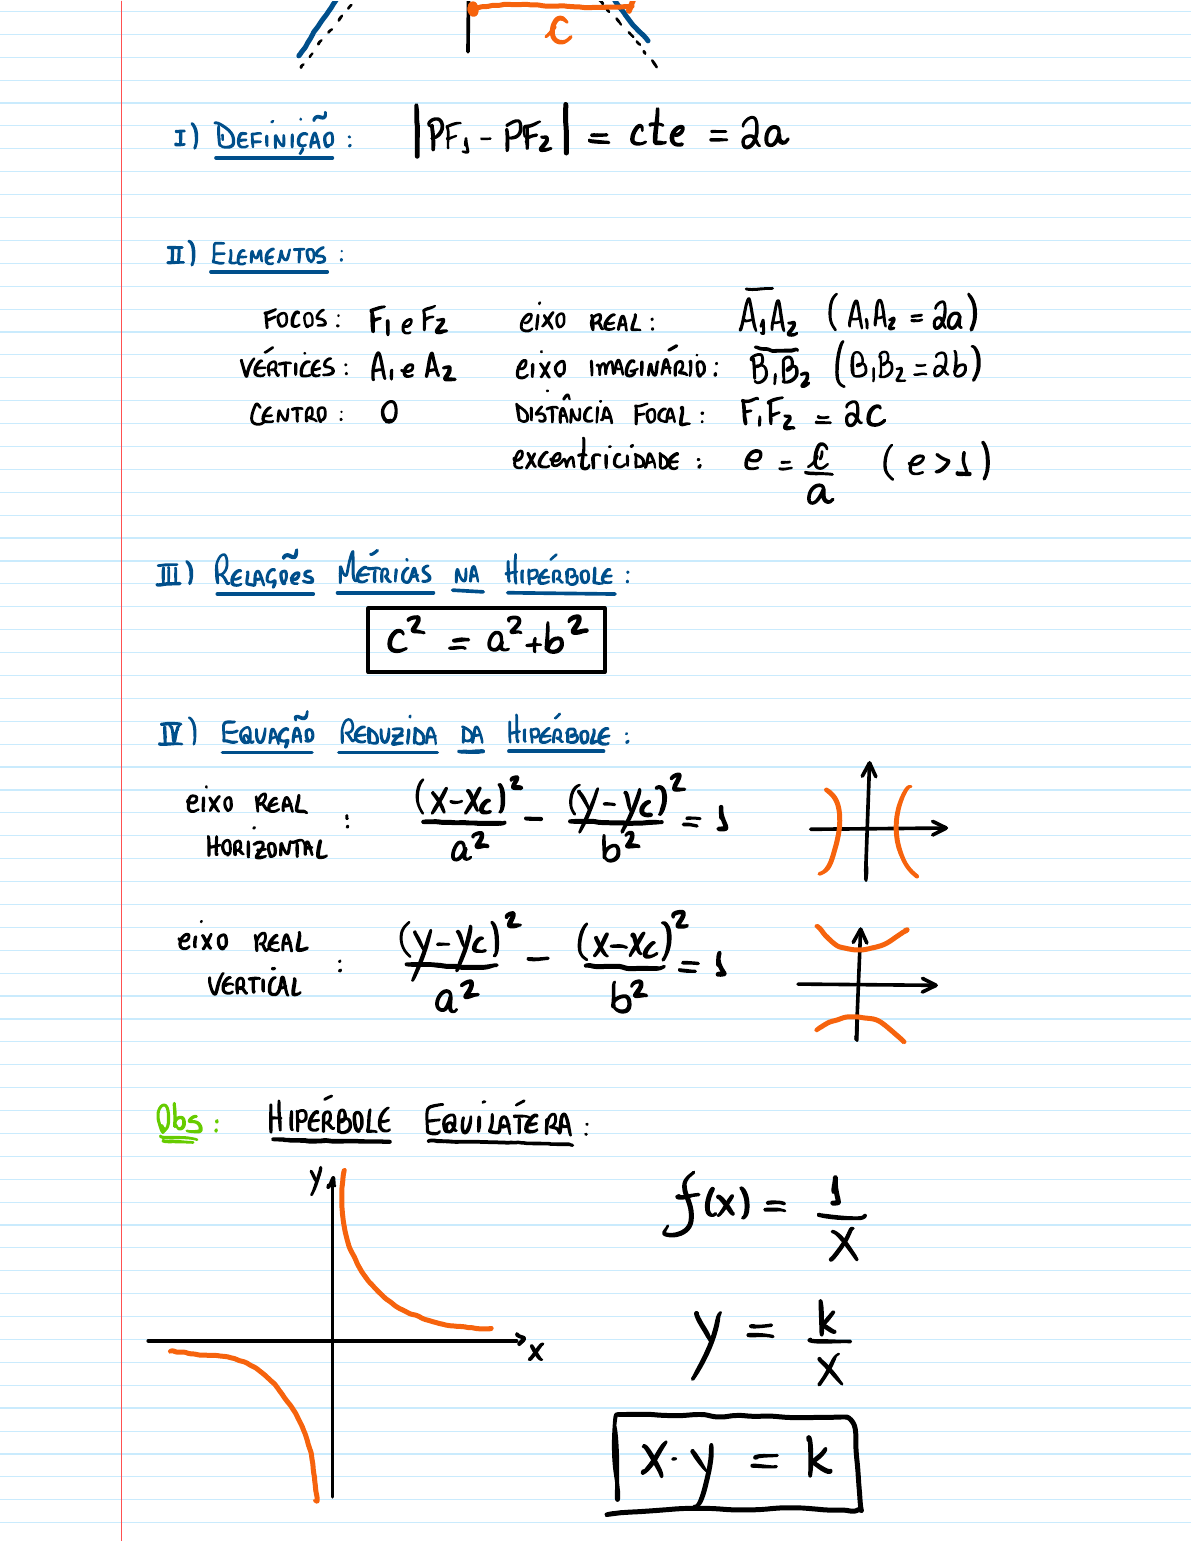 c
I) DEFINIÇÃO: |PF₁ - PF₂| = cte = 2a
II) ELEMENTOS:
FOCOS: F₁ e F₂ eixo REAL: A̅₁A̅₂ (A₁A₂ = 2a)
VÉRTICES: A₁ e A₂ eixo IMAGINÁRIO: B̅₁B̅₂ (B₁B₂ = 2b)
CENTRO: O DISTÂNCIA FOCAL: F₁F₂ = 2c
excentricidade: e = c/a (e > 1)
III) RELAÇÕES MÉTRICAS NA HIPÉRBOLE:
c² = a² + b²
IV) EQUAÇÃO REDUZIDA DA HIPÉRBOLE:
eixo REAL HORIZONTAL: (x-xc)²/a² - (y-yc)²/b² = 1
eixo REAL VERTICAL: (y-yc)²/a² - (x-xc)²/b² = 1
Obs: HIPÉRBOLE EQUILÁTERA:
y
x
f(x) = 1/x
y = k/x
x·y = k